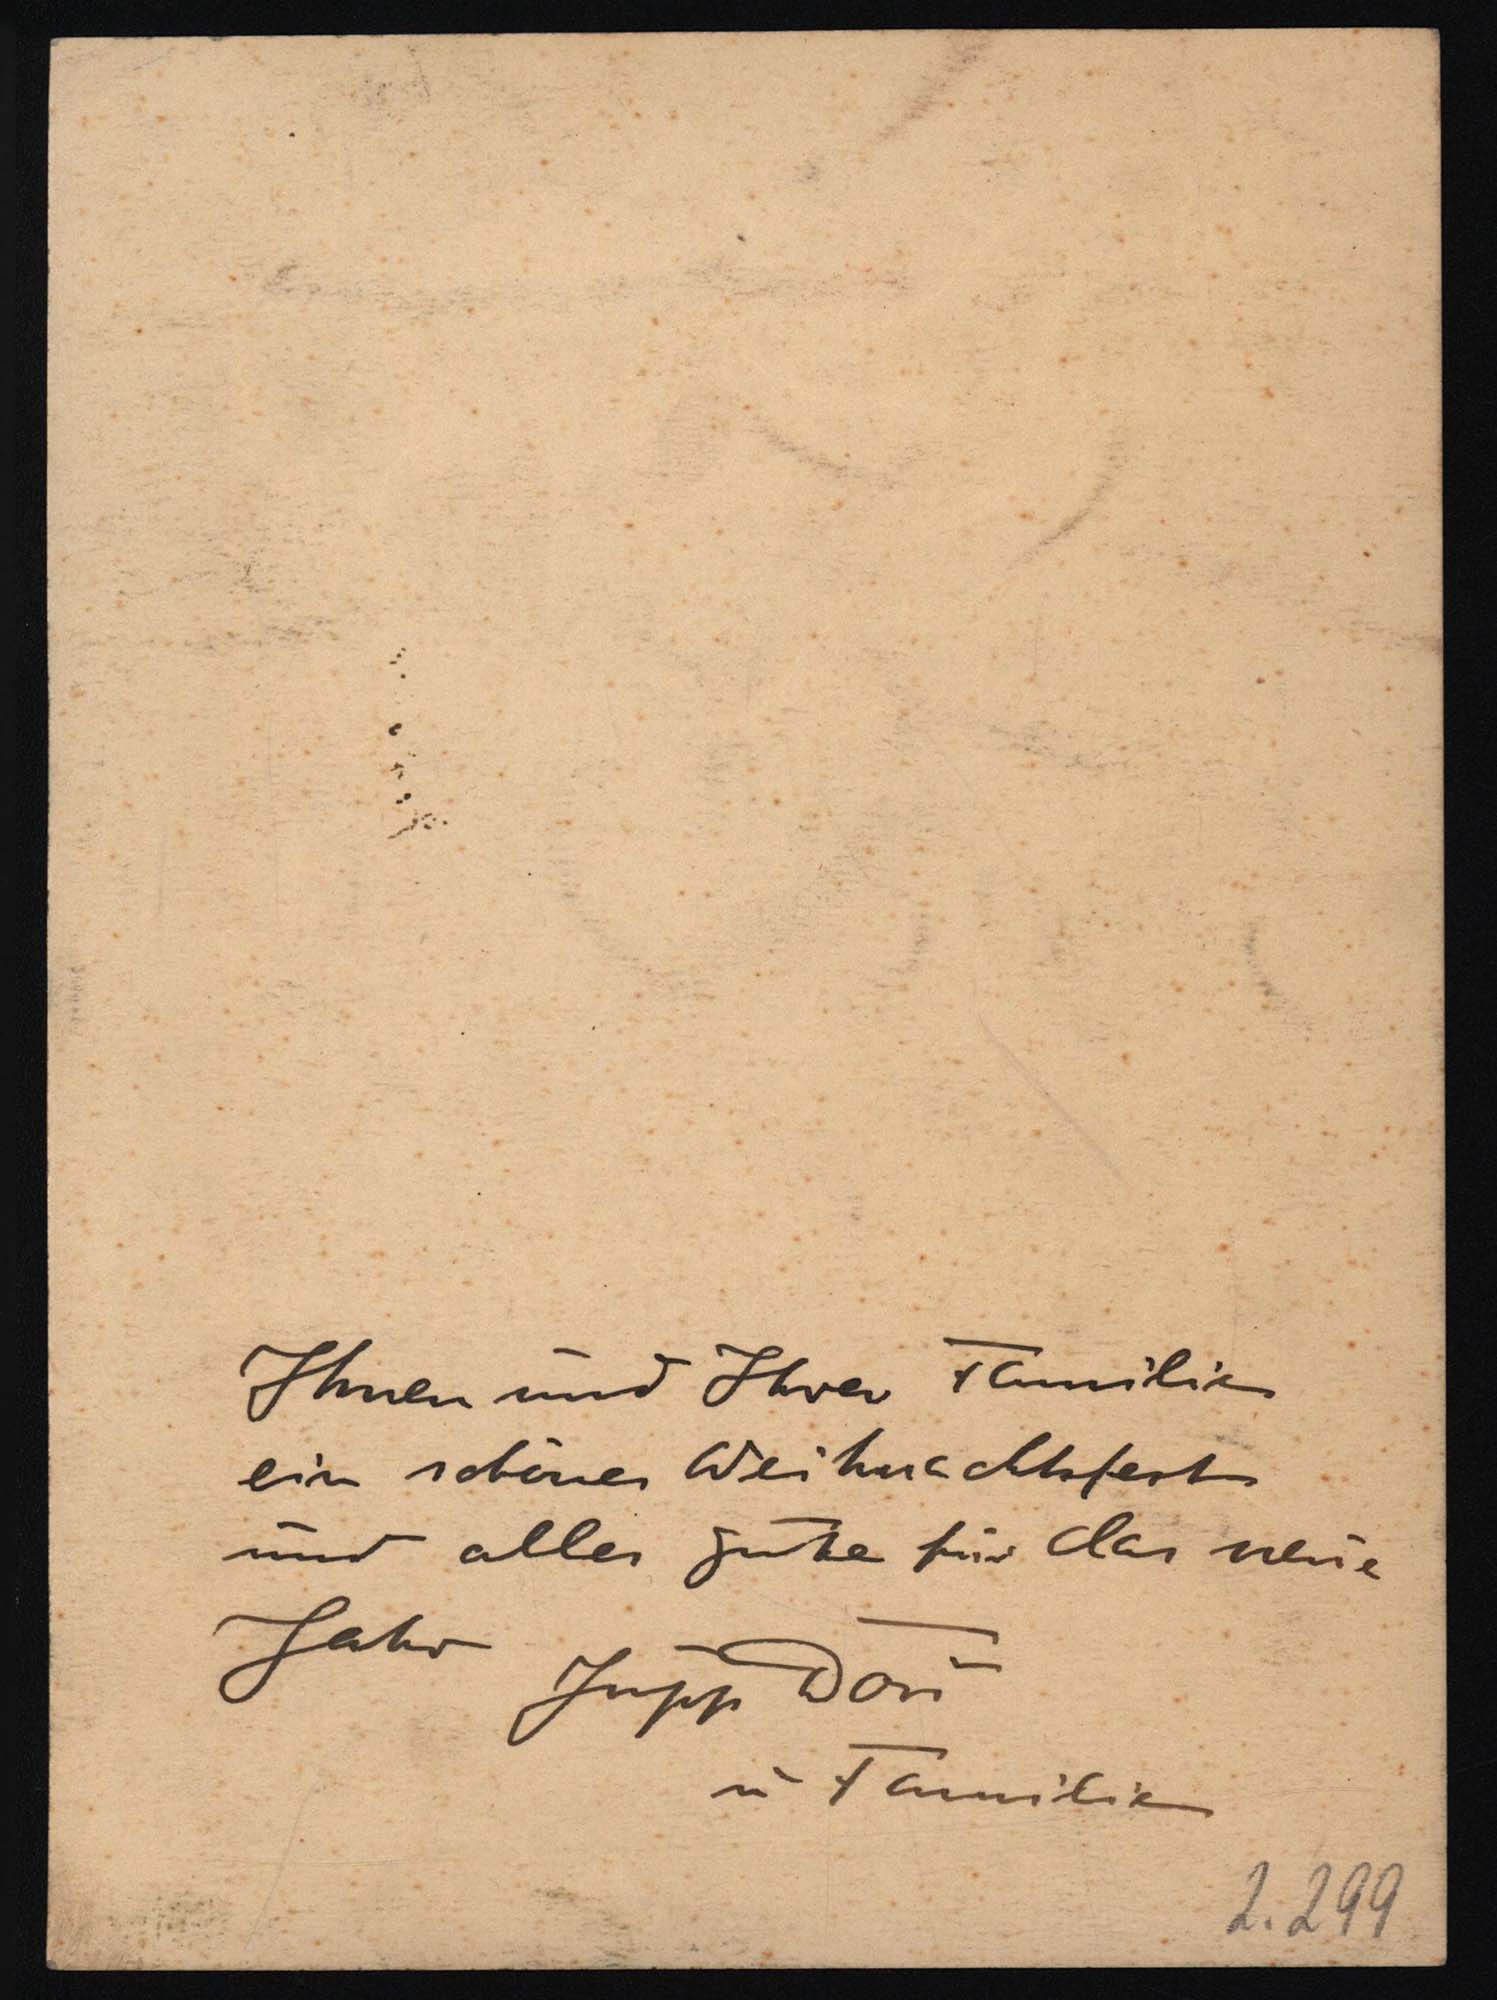 Ihnen und Ihrer Familie
ein schönes Weihnachtsfest
und alles gute für das neue
Jahr
Jupp
u Familie
2.299